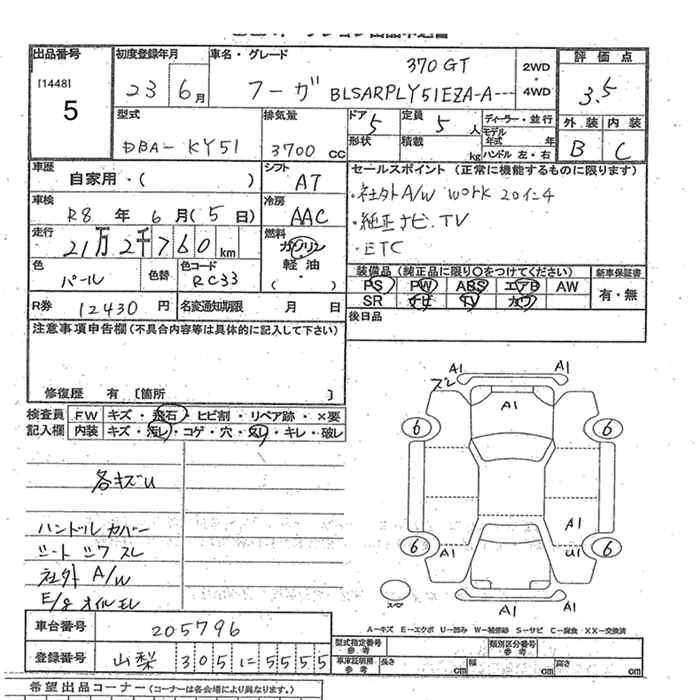 出品番号
[1448]
5
初度登録年月
23 6月
車名・グレード
フーガ
370GT
BLSARPLY51EZA-A---
2WD
・
4WD
評価点
3.5
外装 内装
B C
型式
DBA-KY51
排気量
3700 cc
ドア 5
形状
定員 5 人
積載 kg
ディーラー・並行
モデル年式 年
ハンドル 左・右
車歴
自家用・( )
シフト
AT
車検
R8年6月(5日)
冷房
AAC
走行
21万2千760km
燃料
ガソリン
軽油
・
( )
色
パール
色替
色コード
RC33
R券 12430円
名変通知期限 月 日
セールスポイント(正常に機能するものに限ります)
・社外A/W WORK 20インチ
・純正ナビ.TV
・ETC
装備品(純正品に限り○をつけてください)
PS PW ABS エアB AW
SR ナビ TV カワ
新車保証書
有・無
後日品
注意事項申告欄(不具合内容等は具体的に記入して下さい)
修復歴 有 〔箇所 〕
検査員 FW キズ・飛石・ヒビ割・リペア跡・×要
記入欄 内装 キズ・汚レ・コゲ・穴・スレ・キレ・破レ
各キズU
ハンドルカバー
シート シワ スレ
社外 A/W
E/g オイルモレ
A1 A1
ズレ
A1
6 6
A1
6 A1 U1 6
A1 A1
A-キズ E-エクボ U-凹み W-補修跡 S-サビ C-腐食 XX-交換済
車台番号
205796
登録番号
山梨 305 に 5555
型式指定番号
参考
類別区分番号
参考
車庫証明用
参考
長さ cm 幅 cm 高さ cm
希望出品コーナー(コーナーは各会場により異なります。)